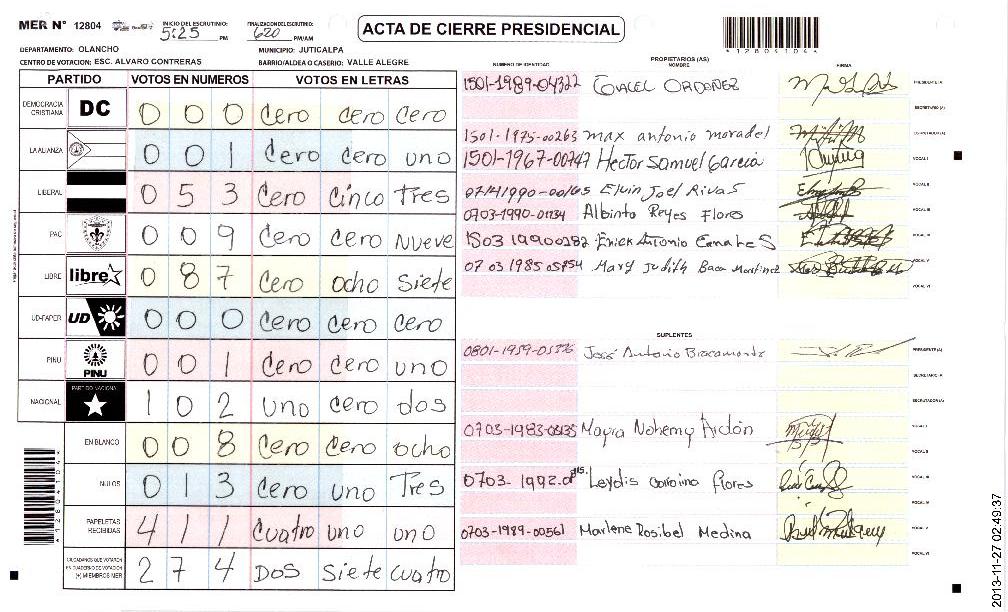 MER N° 12804
INICIO DEL ESCRUTINIO: 5:25 PM
FINALIZACION DEL ESCRUTINIO: 620 PM/AM
ACTA DE CIERRE PRESIDENCIAL
*12804104*
DEPARTAMENTO: OLANCHO
MUNICIPIO: JUTICALPA
CENTRO DE VOTACION: ESC. ALVARO CONTRERAS
BARRIO/ALDEA O CASERIO: VALLE ALEGRE
PARTIDO VOTOS EN NUMEROS VOTOS EN LETRAS
DEMOCRACIA CRISTIANA DC 0 0 0 Cero cero cero
LA ALIANZA 0 0 1 Cero cero uno
LIBERAL 0 5 3 Cero Cinco Tres
PAC 0 0 9 Cero Cero Nueve
LIBRE libre 0 8 7 Cero ocho siete
UD-FAPER UD 0 0 0 Cero cero cero
PINU PINU 0 0 1 Cero cero uno
NACIONAL PARTIDO NACIONAL 1 0 2 uno cero dos
EN BLANCO 0 0 8 Cero Cero ocho
NULOS 0 1 3 Cero uno Tres
PAPELETAS RECIBIDAS 4 1 1 Cuatro uno uno
CIUDADANOS QUE VOTARON EN CUADERNO DE VOTACION (+) MIEMBROS MER 2 7 4 Dos siete cuatro
*12804104*
PROPIETARIOS (AS)
NUMERO DE IDENTIDAD NOMBRE FIRMA
1501-1989-04322 ORDOÑEZ PRESIDENTE (A)
SECRETARIO (A)
1501-1975-00263 max antonio moradel ESCRUTADOR (A)
1501-1967-00747 Hector Samuel Garcia VOCAL I
Elvin Joel Rivas VOCAL II
0703-1990-01134 Albinto Reyes Flores VOCAL III
1503 19900282 Erick Antonio Canales VOCAL IV
07 03 1985 05754 Mary Judith Baca Martinez VOCAL V
VOCAL VI
SUPLENTES
José Antonio Bracamonte PRESIDENTE (A)
SECRETARIO (A)
ESCRUTADOR (A)
0703-1983-03135 Mayra Nohemy Ardón VOCAL I
VOCAL II
0703-1992. Leydis Carolina flores VOCAL III
VOCAL IV
0703-1989-00561 Marlene Rosibel Medina VOCAL V
VOCAL VI
2013-11-27 02:49:37